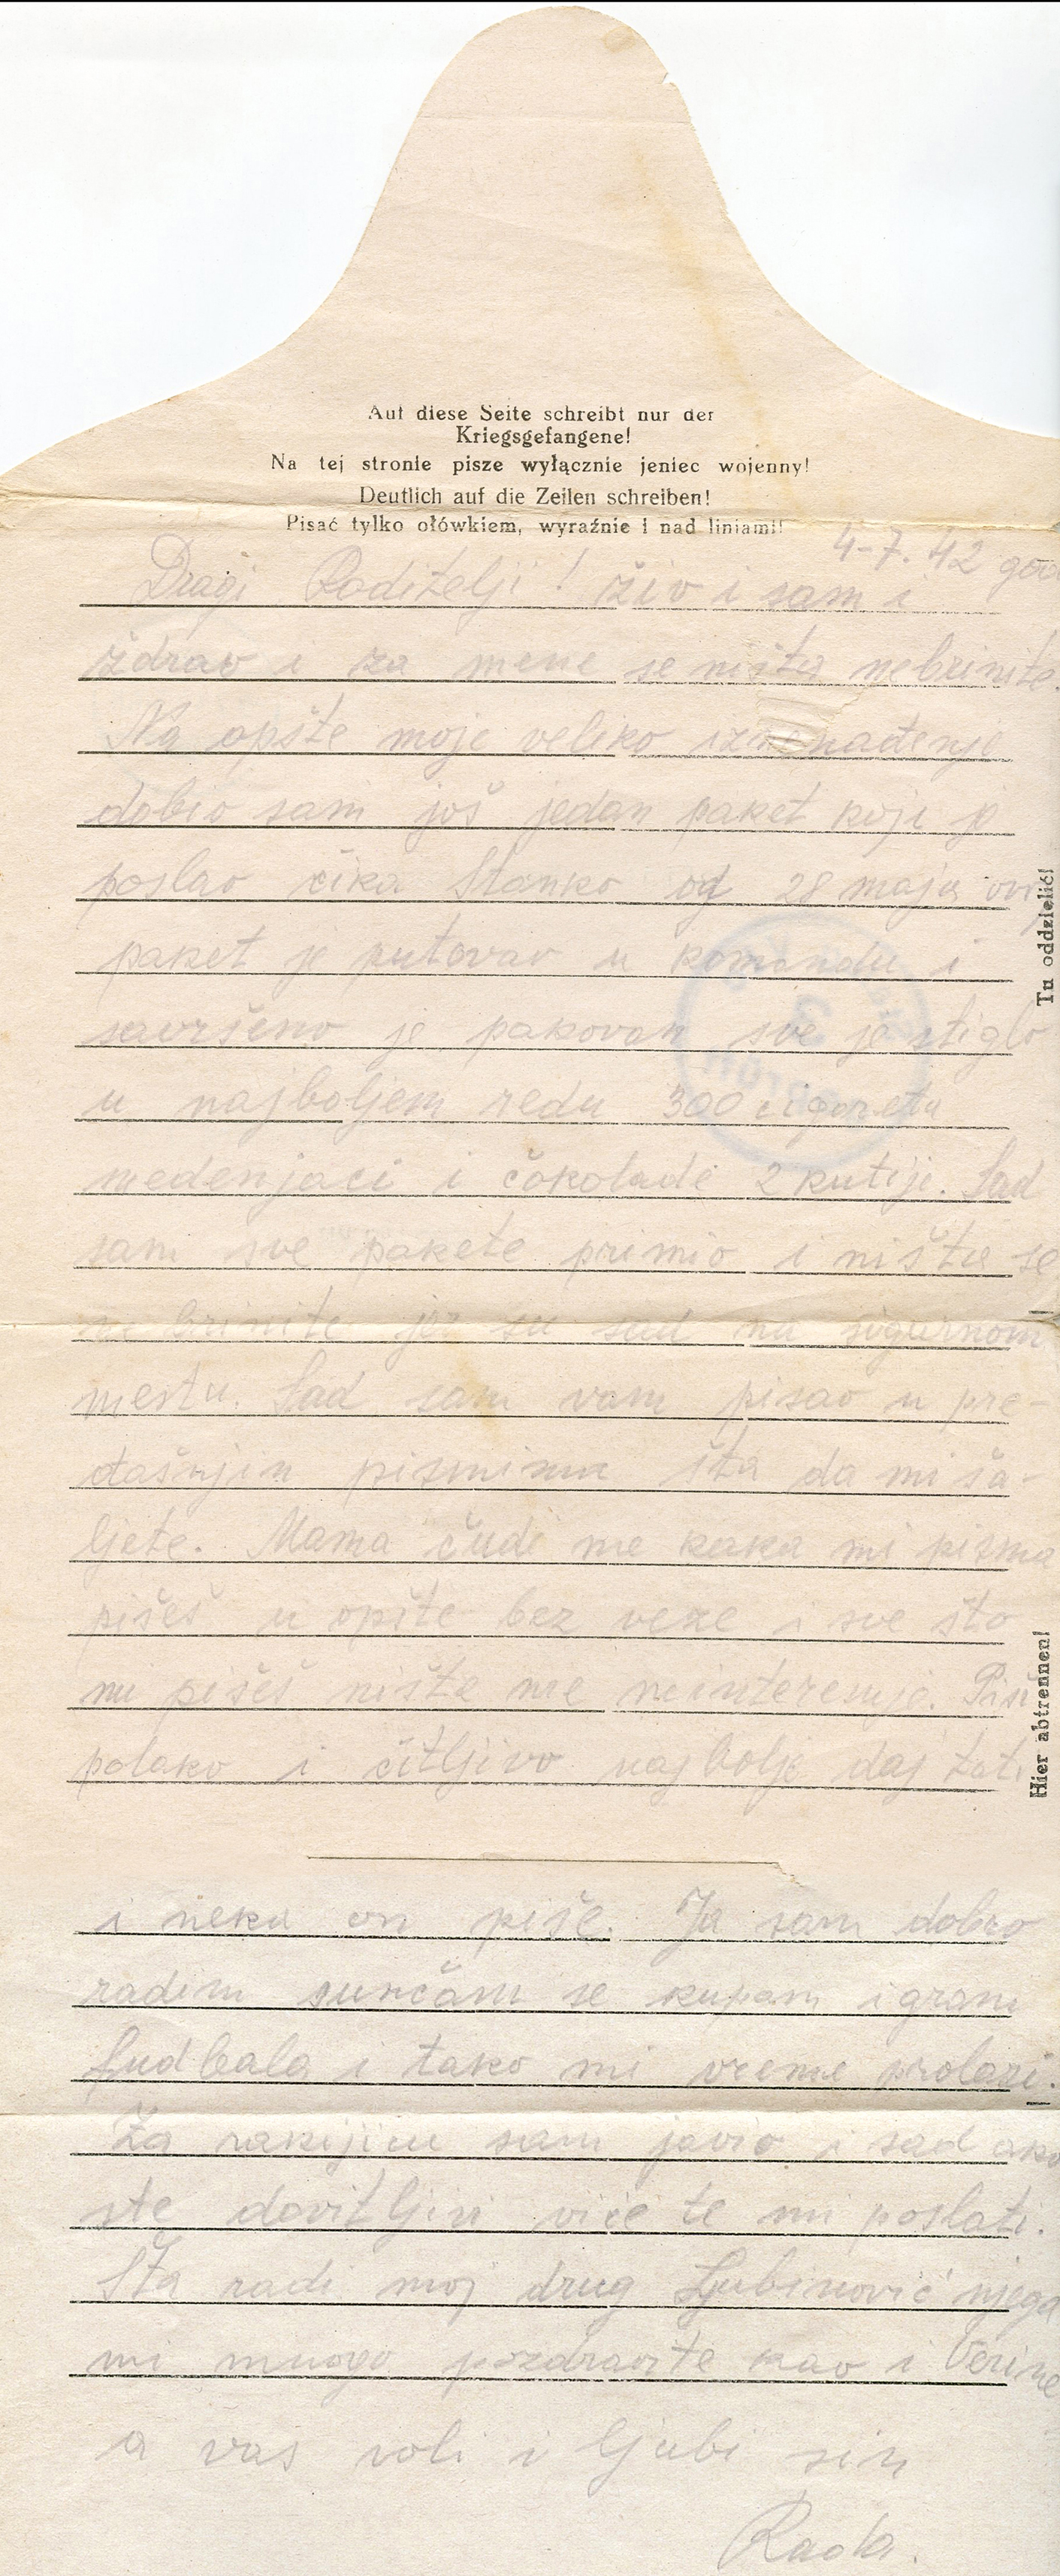 Auf diese Seite schreibt nur der
Kriegsgefangene!
Na tej stronie pisze wyłącznie jeniec wojenny!
Deutlich auf die Zeilen schreiben!
Pisać tylko ołówkiem, wyraźnie i nad liniami!
4-7. 42 god
Dragi Roditelji! živ i sam i
zdrav i za mene se ništa nebrinite.
Na opšte moje veliko iznenađenje
dobio sam još jedan paket koji je
poslao čika Stanko od 28 maja ovaj
paket je putovao u komandu i
savršeno je pakovan sve je stiglo
u najboljem redu 300 cigareta
medenjaci i čokolade 2 kutije. Sad
sam sve pakete primio i ništa se
ne brinite jer su sad na sigurnom
mestu. Sad sam vam pisao u pre-
đašnjin pismima šta da mi ša-
ljete. Mama čudi me kaka mi pisma
pišeš u opšte bez veze i sve što
mi pišeš ništa me neinteresuje. Piši
polako i čitljivo najbolje daj tati
i neka on piše. Ja sam dobro
radim sunčam se kupam igram
fudbala i tako mi vreme prolazi.
Za rakijicu sam javio i sad ako
ste dovitljivi viće te mi poslati.
Šta radi moj drug Ljubinović njega
mi mnogo pozdravite kao i Verine
a vas voli i ljubi sin
Rada.
Tu oddzielić!
Hier abtrennen!
3